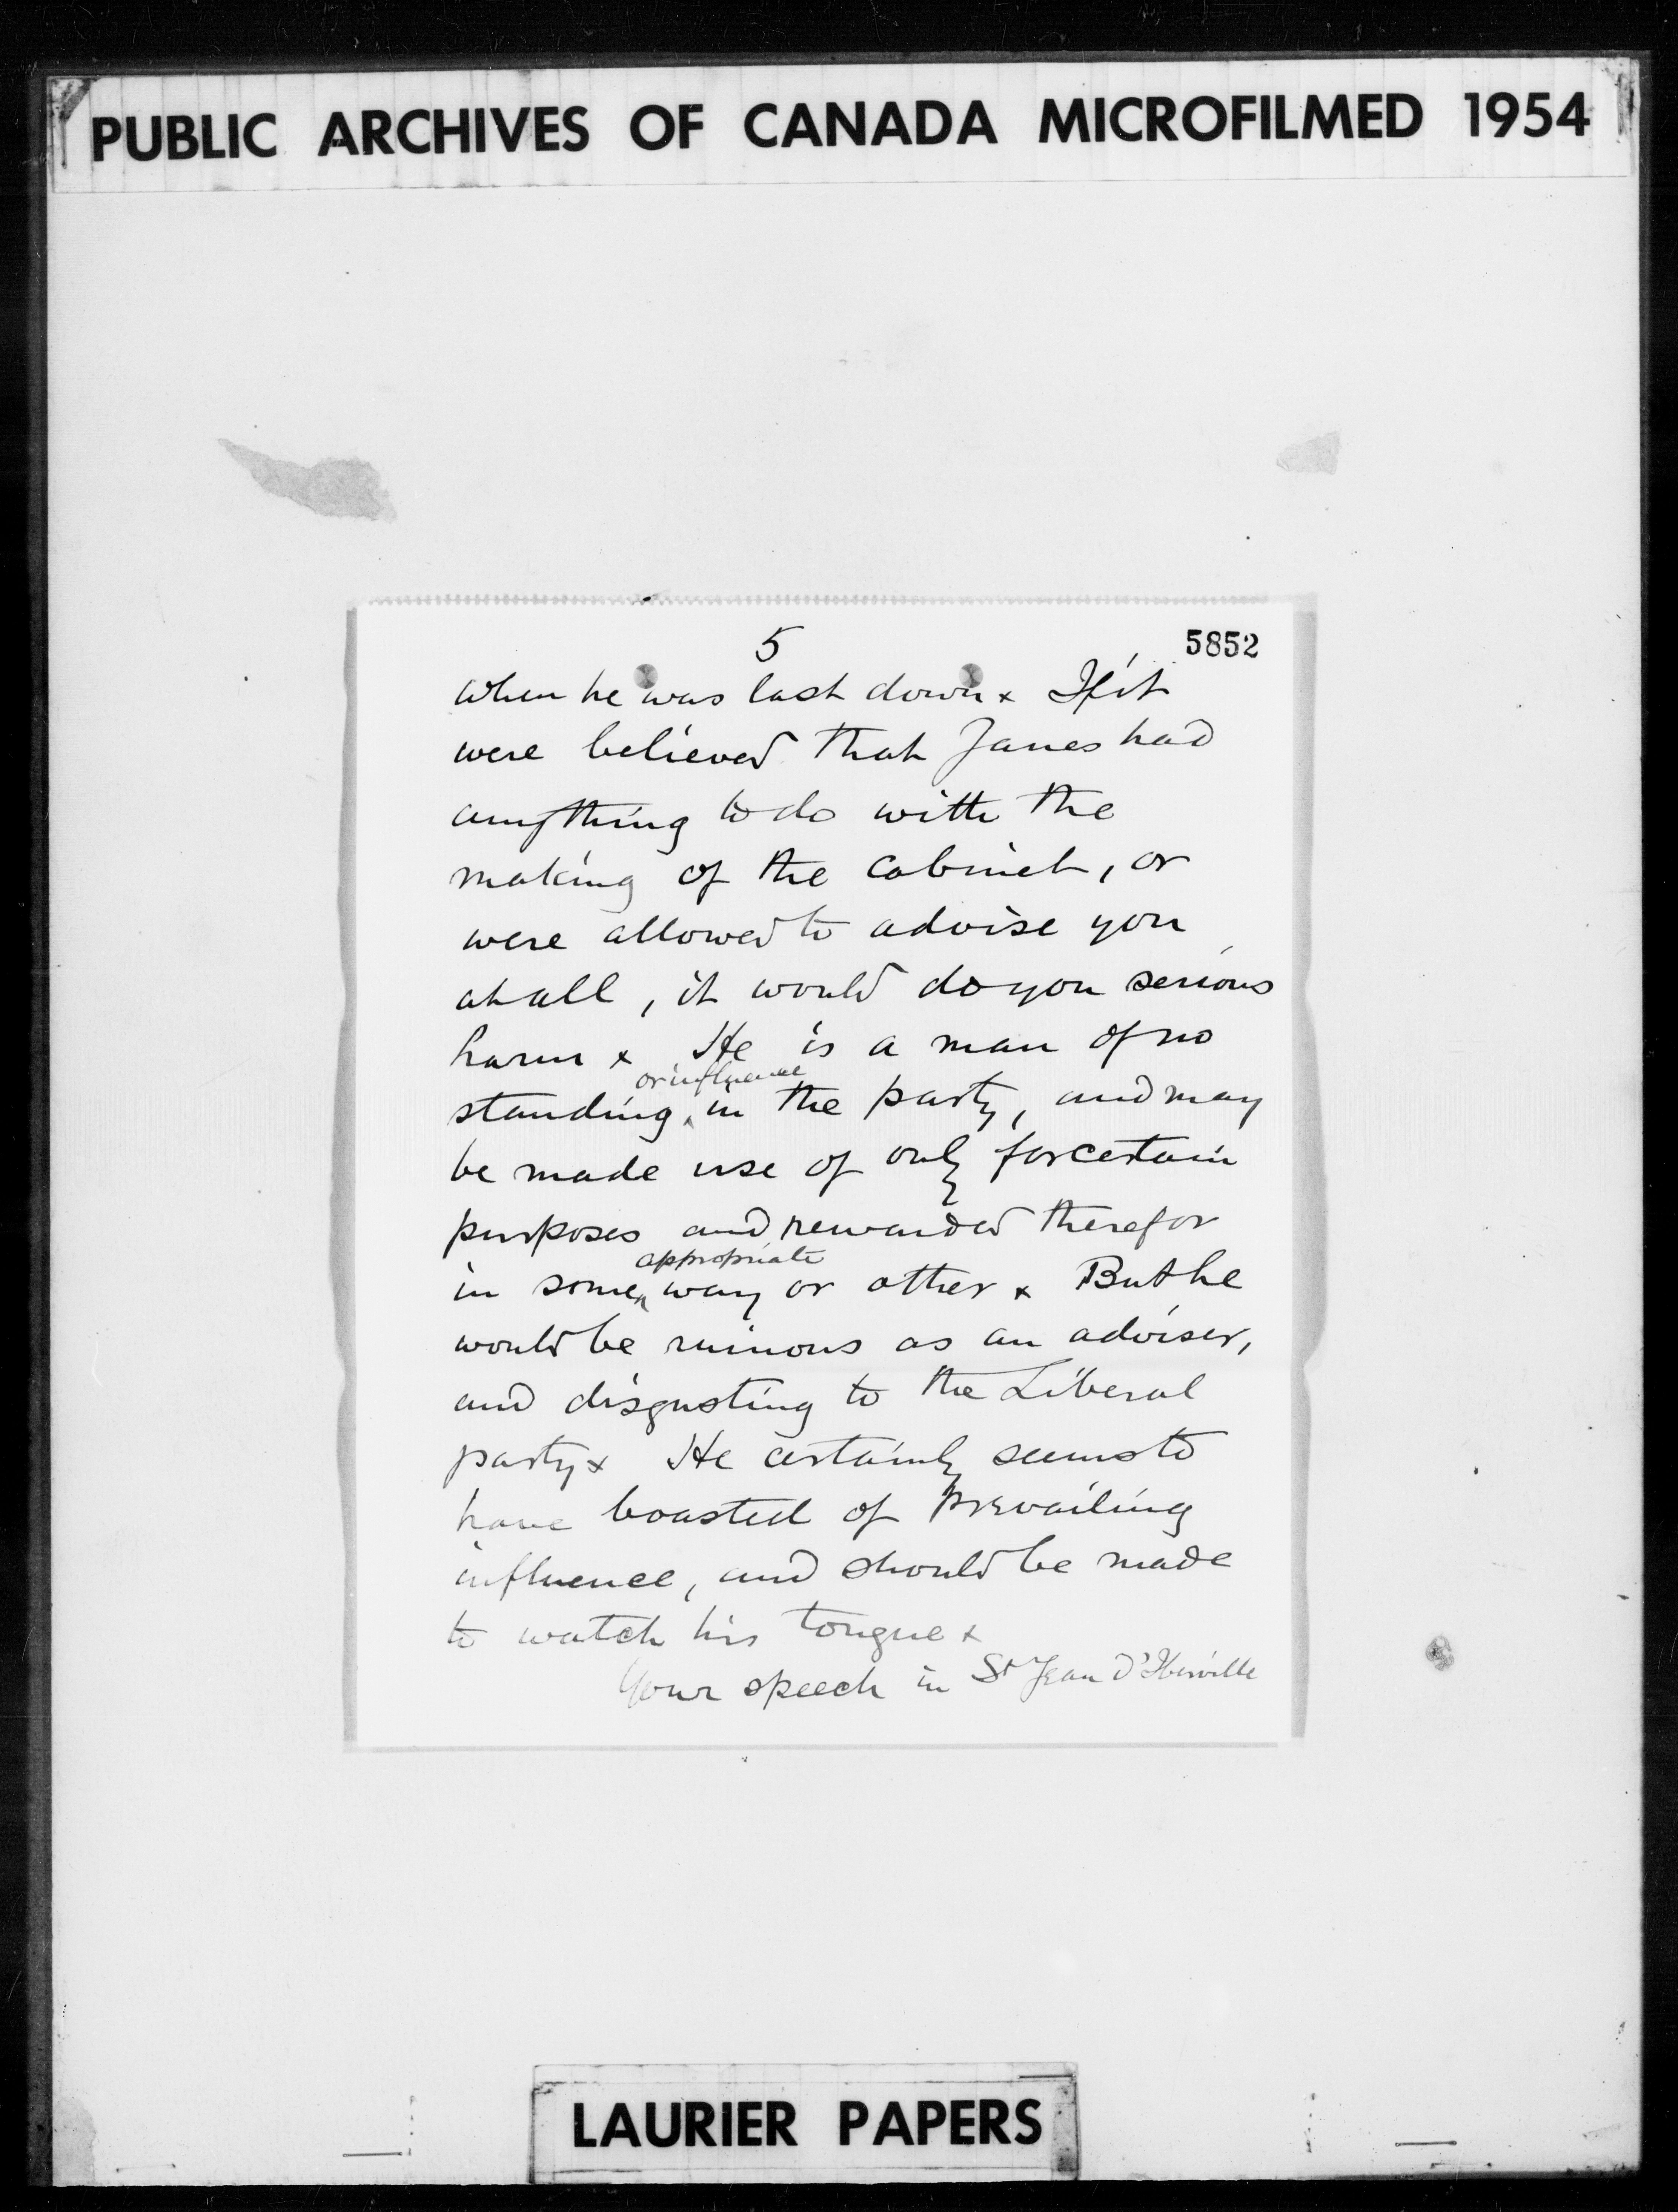 PUBLIC ARCHIVES OF CANADA MICROFILMED 1954
5
5852
when he was last down x If it
were believed that Janes had
anything to do with the
making of the cabinet, or
were allowed to advise you
at all, it would do you serious
harm x He is a man of no
or influence
standing in the party, and may
be made use of only for certain
purposes and rewarded therefor
appropriate
in some way or other x But he
would be ruinous as an adviser,
and disgusting to the Liberal
party x He certainly seems to
have boasted of prevailing
influence, and should be made
to watch his tongue x
Your speech in St Jean D'Iberville
LAURIER PAPERS